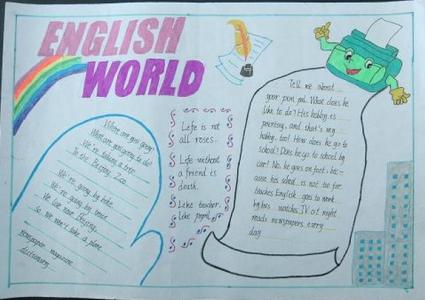 ENGLISH
WORLD
Where are you going?
What are you going to do?
We're taking a trip
To the Beijing Zoo.
We're going by bike.
We're going by train.
We live near Beijing.
So we won't take a plane.
newspaper magazine
dictionary
Life is not
all roses.
Life without
a friend is
death.
Like teacher,
like pupil.
Tell me about
your pen pal. What does he
like to do? His hobby is
painting, and that's my
hobby, too! How does he go to
school? Does he go to school by
car? No, he goes on foot, bec-
ause his school is not too far
teaches English. goes to work
by bus. watches TV at night
reads newspapers every
day